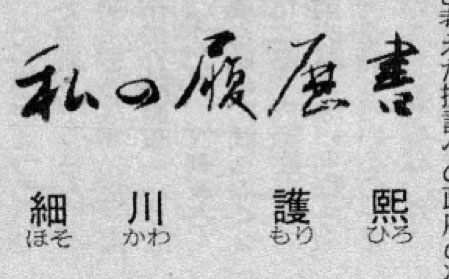 私の履歴書
細川 護熙
ほそ かわ もり ひろ